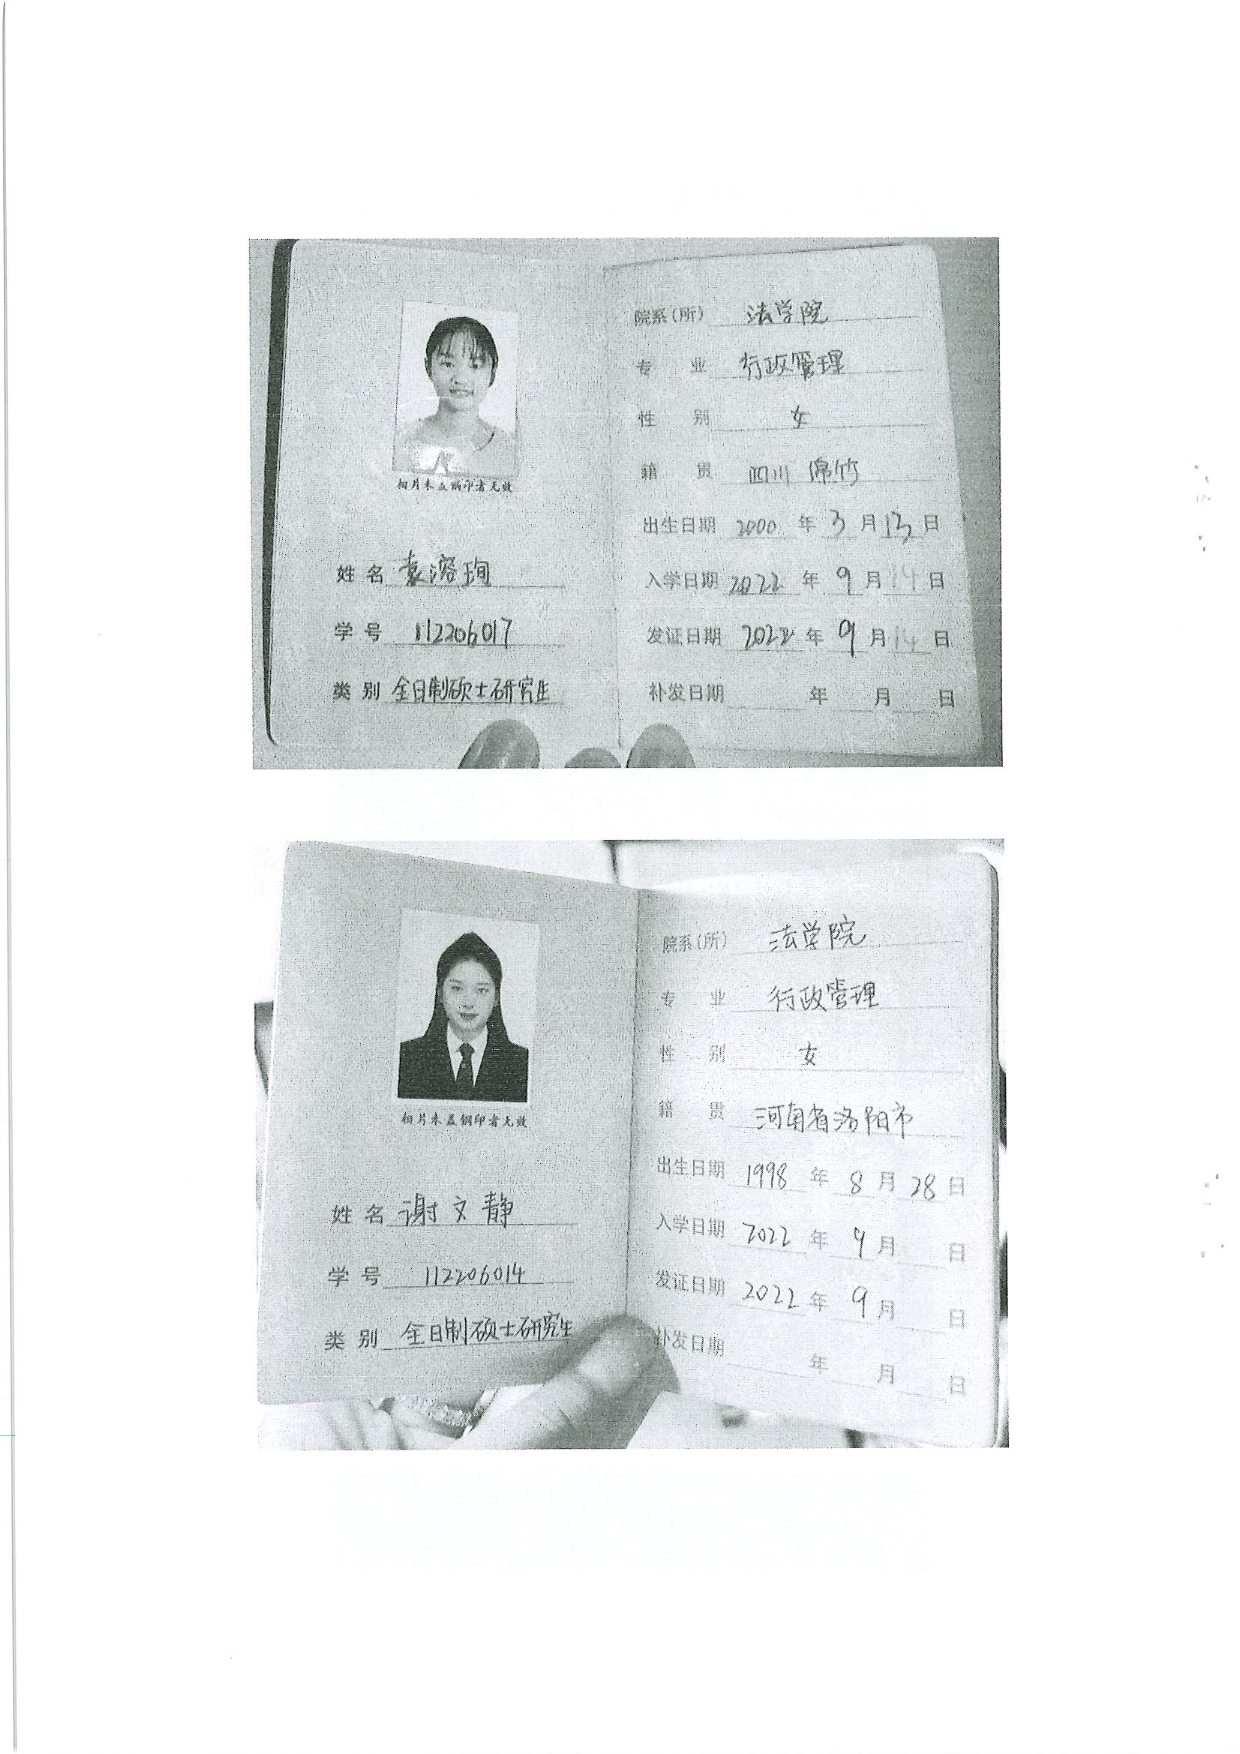 相片未盖钢印者无效
姓名 袁溶珣
学号 112206017
类别 全日制硕士研究生
院系(所) 法学院
专业 行政管理
性别 女
籍贯 四川 绵竹
出生日期 2000 年 3 月 13 日
入学日期 2022 年 9 月 14 日
发证日期 2022 年 9 月 14 日
补发日期 年 月 日
相片未盖钢印者无效
姓名 谢文静
学号 112206014
类别 全日制硕士研究生
院系(所) 法学院
专业 行政管理
性别 女
籍贯 河南省洛阳市
出生日期 1998 年 8 月 28 日
入学日期 2022 年 9 月 日
发证日期 2022 年 9 月 日
补发日期 年 月 日